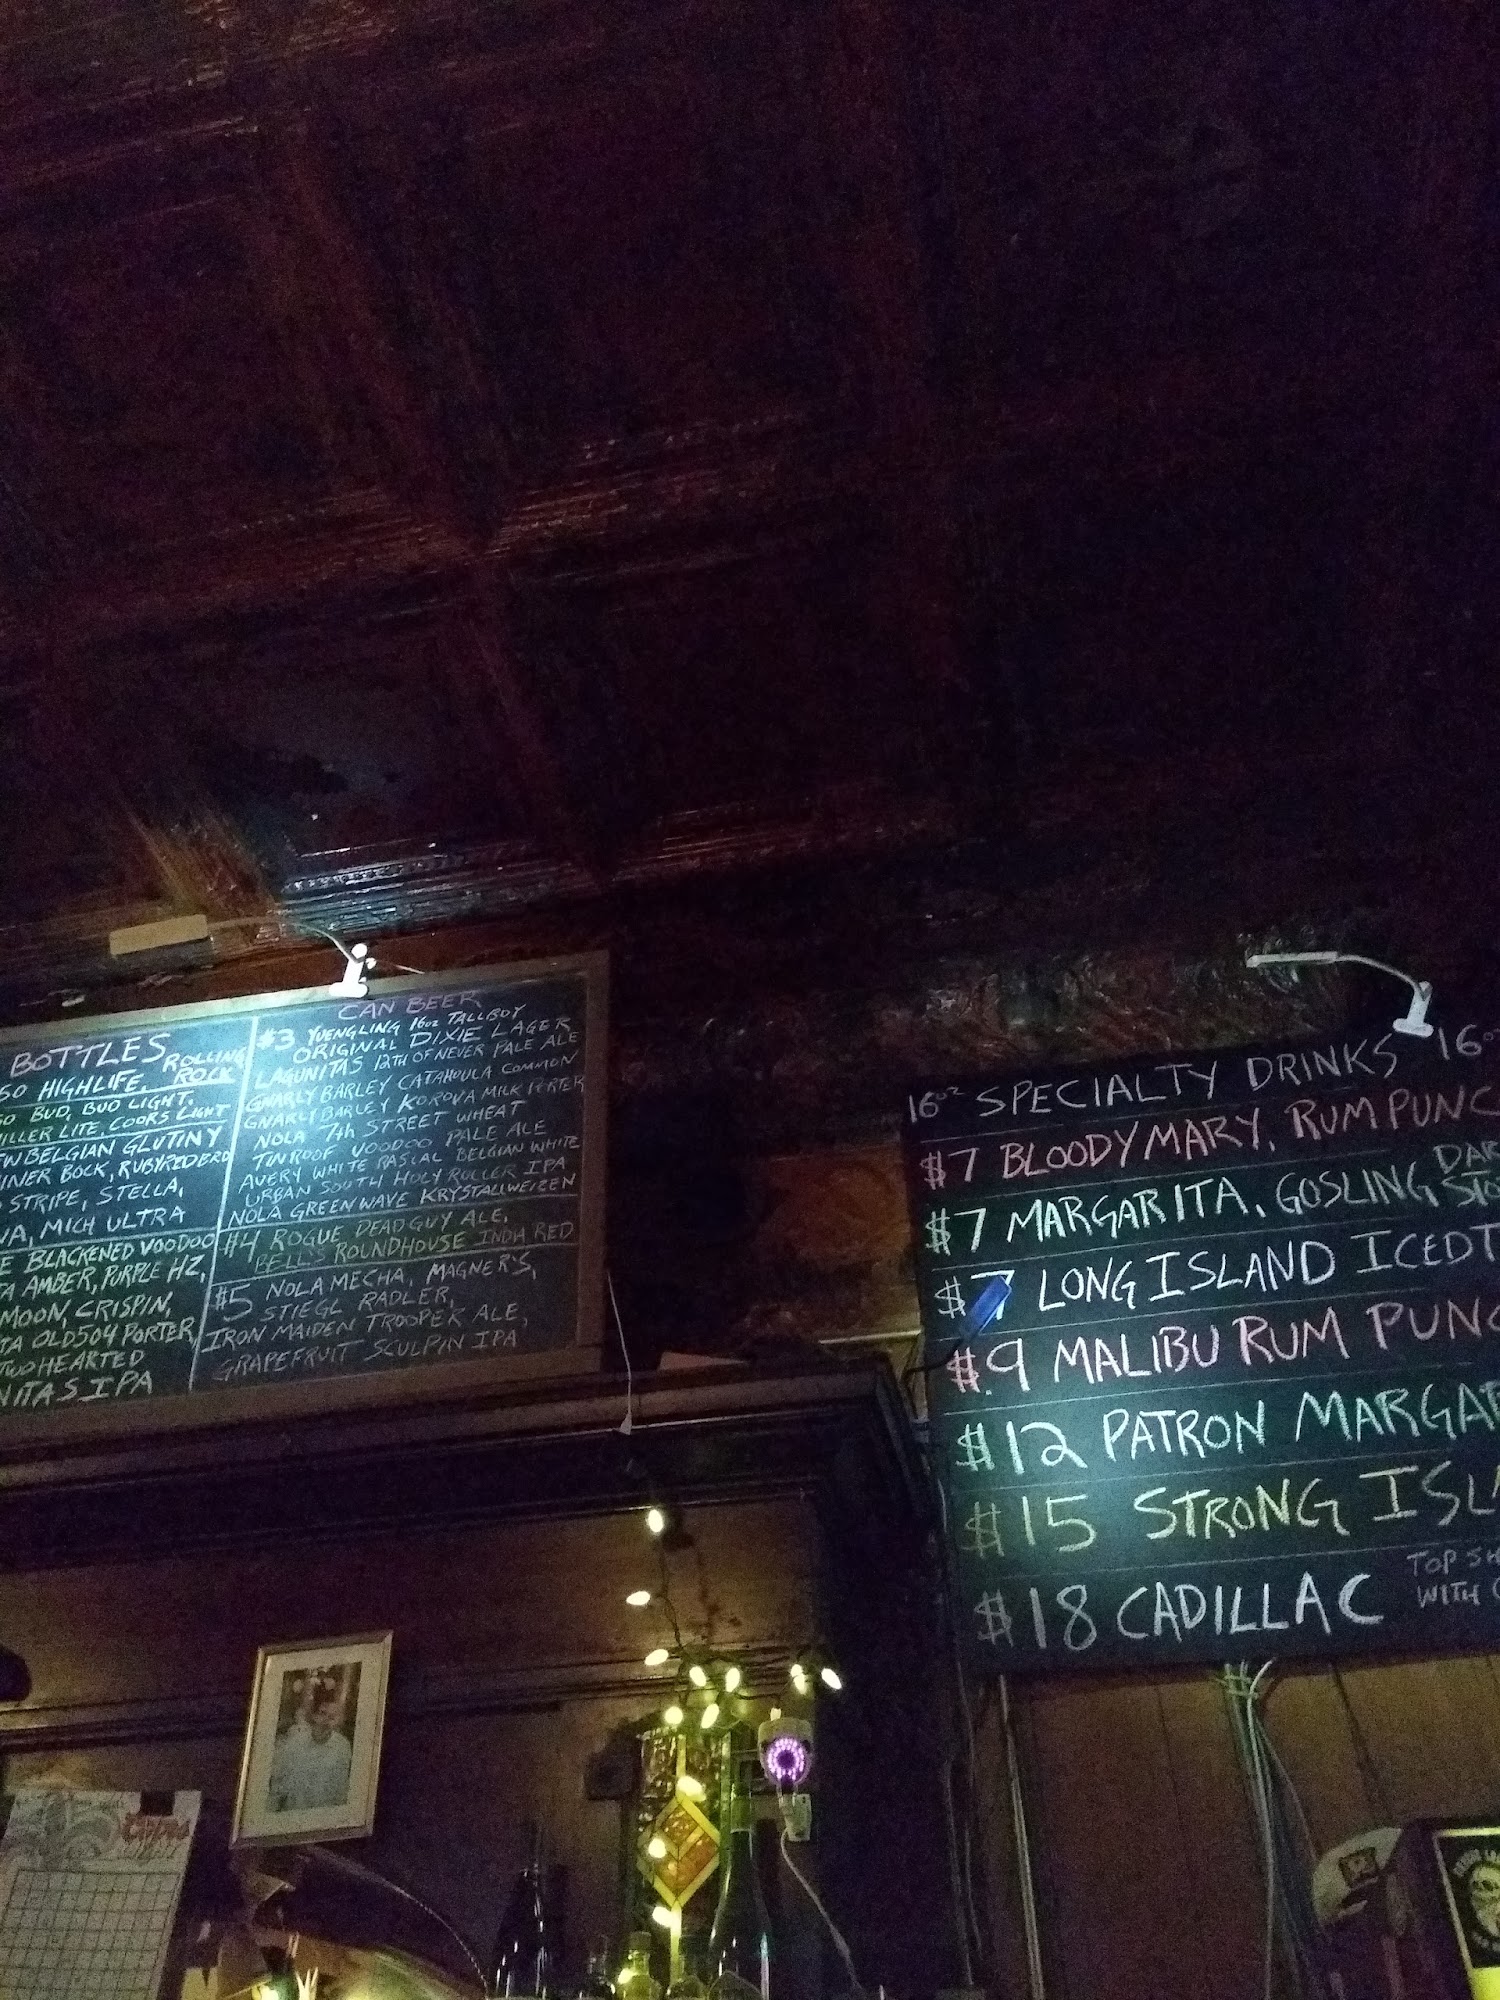 BOTTLES
50 HIGHLIFE, ROLLING ROCK
BUD, BUD LIGHT,
MILLER LITE, COORS LIGHT
BELGIAN GLUTINY
BOCK, RUBYREDBRD
STRIPE, STELLA,
MICH ULTRA
BLACKENED VOODOO
AMBER, PURPLE HZ,
MOON, CRISPIN,
OLD504 PORTER,
TWOHEARTED
IPA
CAN BEER
$3 YUENGLING 16oz TALLBOY
ORIGINAL DIXIE LAGER
LAGUNITAS 12TH OF NEVER PALE ALE
GNARLY BARLEY CATAHOULA COMMON
GNARLY BARLEY KOROVA MILK PORTER
NOLA 7th STREET WHEAT
TIN ROOF VOODOO PALE ALE
AVERY WHITE RASCAL BELGIAN WHITE
URBAN SOUTH HOLY ROLLER IPA,
NOLA GREENWAVE KRYSTALLWEIZEN
$4 ROGUE DEADGUY ALE,
BELL'S ROUNDHOUSE INDIA RED
$5 NOLA MECHA, MAGNER'S,
STIEGL RADLER,
IRON MAIDEN TROOPER ALE,
GRAPEFRUIT SCULPIN IPA
16oz SPECIALTY DRINKS 16oz
$7 BLOODYMARY, RUMPUNC
$7 MARGARITA, GOSLING DAR STO
$7 LONG ISLAND ICEDT
$9 MALIBU RUM PUNC
$12 PATRON MARGAR
$15 STRONG ISLA
$18 CADILLAC TOP SH
WITH